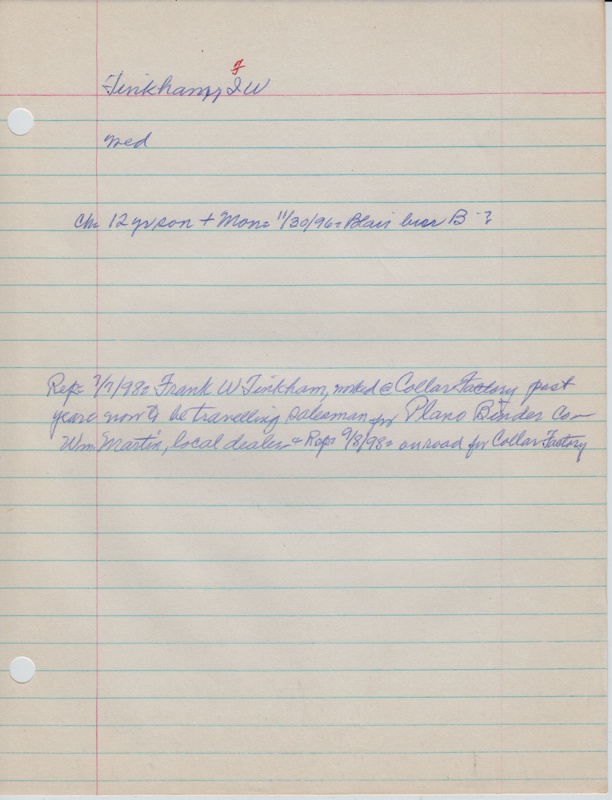 F
Tinkham, F W
med
Ch= 12 yr son + Mon= 11/30/96= Blair bur B-?
Rep= 7/7/98= Frank W Tinkham, worked @ Collar Factory past
years now to be travelling salesman for Plano Binder Co—
Wm Martin, local dealer= Rep= 9/8/98= on road for Collar Factory